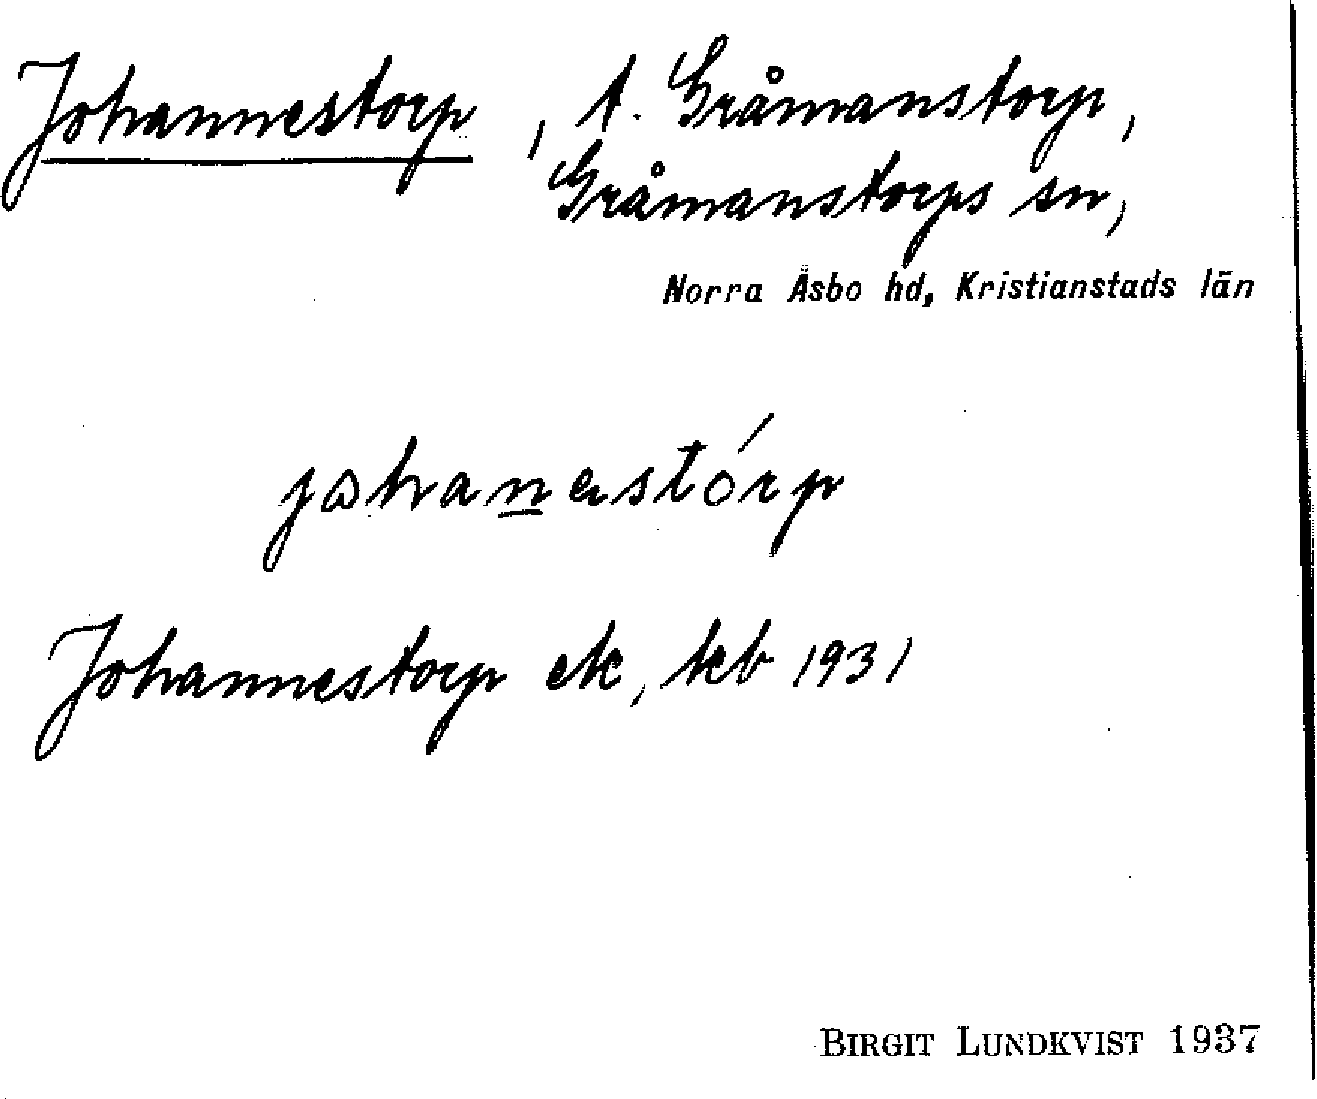 Johannestorp, t. Gråmanstorp,
Gråmanstorps sn,
Norra Åsbo hd, Kristianstads län
johanestórp
Johannestorp ek, kb 1931
BIRGIT LUNDKVIST 1937